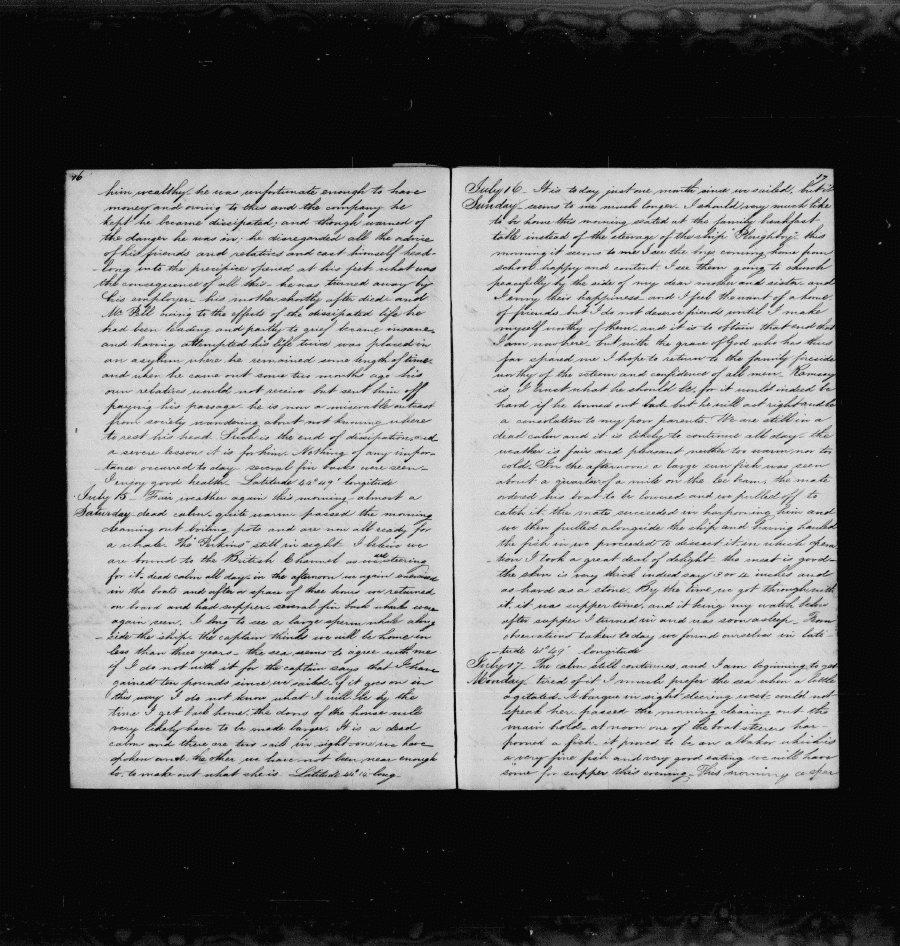 16
him wealthy. he was unfortunate enough to have
money and owing to this and the company he
kept he became dissipated; and though warned of
the danger he was in, he disregarded all the advice
of his friends and relatives and cast himself head-
-long into the precipice opened at his feet what was
the consequence of all this - he was turned away by
his employer. his mother shortly after died and
Mr Pell owing to the effects of the dissipated life he
had been leading and partly to grief became insane
and having attempted his life twice was placed in
an asylum where he remained some length of time.
and when he came out some two months ago his
own relatives would not receive but sent him off
paying his passage he is now a miserable outcast
from society wandering about not knowing where
to rest his head. Such is the end of dissipation, and
a severe lesson it is for him. Nothing of any impor-
-tance occurred to day. several fin backs were seen -
I enjoy good health. Latitude 44° 49' longitude
July 15 - Fair weather again this morning - almost a
Saturday dead calm, quite warm. passed the morning
cleaning out boiling pots and are now all ready for
a whale. The "Perkins" still in sight. I believe we
are bound to the British Channel as we are steering
for it. dead calm all day. in the afternoon we again exercised
in the boats and after a space of three hours we returned
on board and had supper. several fin back whales were
again seen. I long to see a large sperm whale along
-side the ship. the captain thinks we will be home in
less than three years - the sea seems to agree with me
if I do not with it for the captain says that I have
gained ten pounds since we sailed. if it goes on in
this way I do not know what I will be by the
time I get back home. the doors of the house will
very likely have to be made larger. It is a dead
calm and there are two sail in sight one we have
spoken and the other we have not been near enough
to, to make out what she is. Latitude 44° 14' long
17
July 16 - It is to day just one month since we sailed, but it
Sunday - seems to me much longer. I should very much like
to be home this morning seated at the family breakfast
table instead of the steerage of the ship "Ploughboy". this
morning it seems to me I see the boys coming home from
school happy and content. I see them going to church
peacefully by the side of my dear mother and sister and
I envy their happiness and I feel the want of a home
of friends but I do not deserve friends until I make
myself worthy of them, and it is to obtain that end that
I am now here. but with the grace of God who has thus
far spared me I hope to return to the family fireside
worthy of the esteem and confidence of all men. Ramsey
is I trust what he should be, for it would indeed be
hard if he turned out bad. but he will act right and be
a consolation to my poor parents. We are still in a
dead calm and it is likely to continue all day. the
weather is fair and pleasant neither too warm, nor too
cold. In the afternoon a large sun fish was seen
about a quarter of a mile on the lee beam, the mate
ordered his boat to be lowered and we pulled off to
catch it. the mate succeeded in harpooning him and
we then pulled alongside the ship and having hauled
the fish in we proceeded to dissect it. in which opera
-tion I took a great deal of delight. the meat is good -
the skin is very thick indeed say 3 or 4 inches and
as hard as a stone. By the time we got through with
it, it was supper time, and it being my watch below
after supper I turned in and was soon asleep. From
observations taken to day we found ourselves in lati
-tude 41° 49' longitude
July 17. The calm still continues, and I am beginning to get
Monday tired of it I much prefer the sea when a little
agitated. A barque in sight steering west could not
speak her. passed the morning clearing out the
main hold - at noon one of the boat steerers har-
pooned a fish. it proved to be an albacor which is
a very fine fish and very good eating we will have
some for supper this evening. This morning